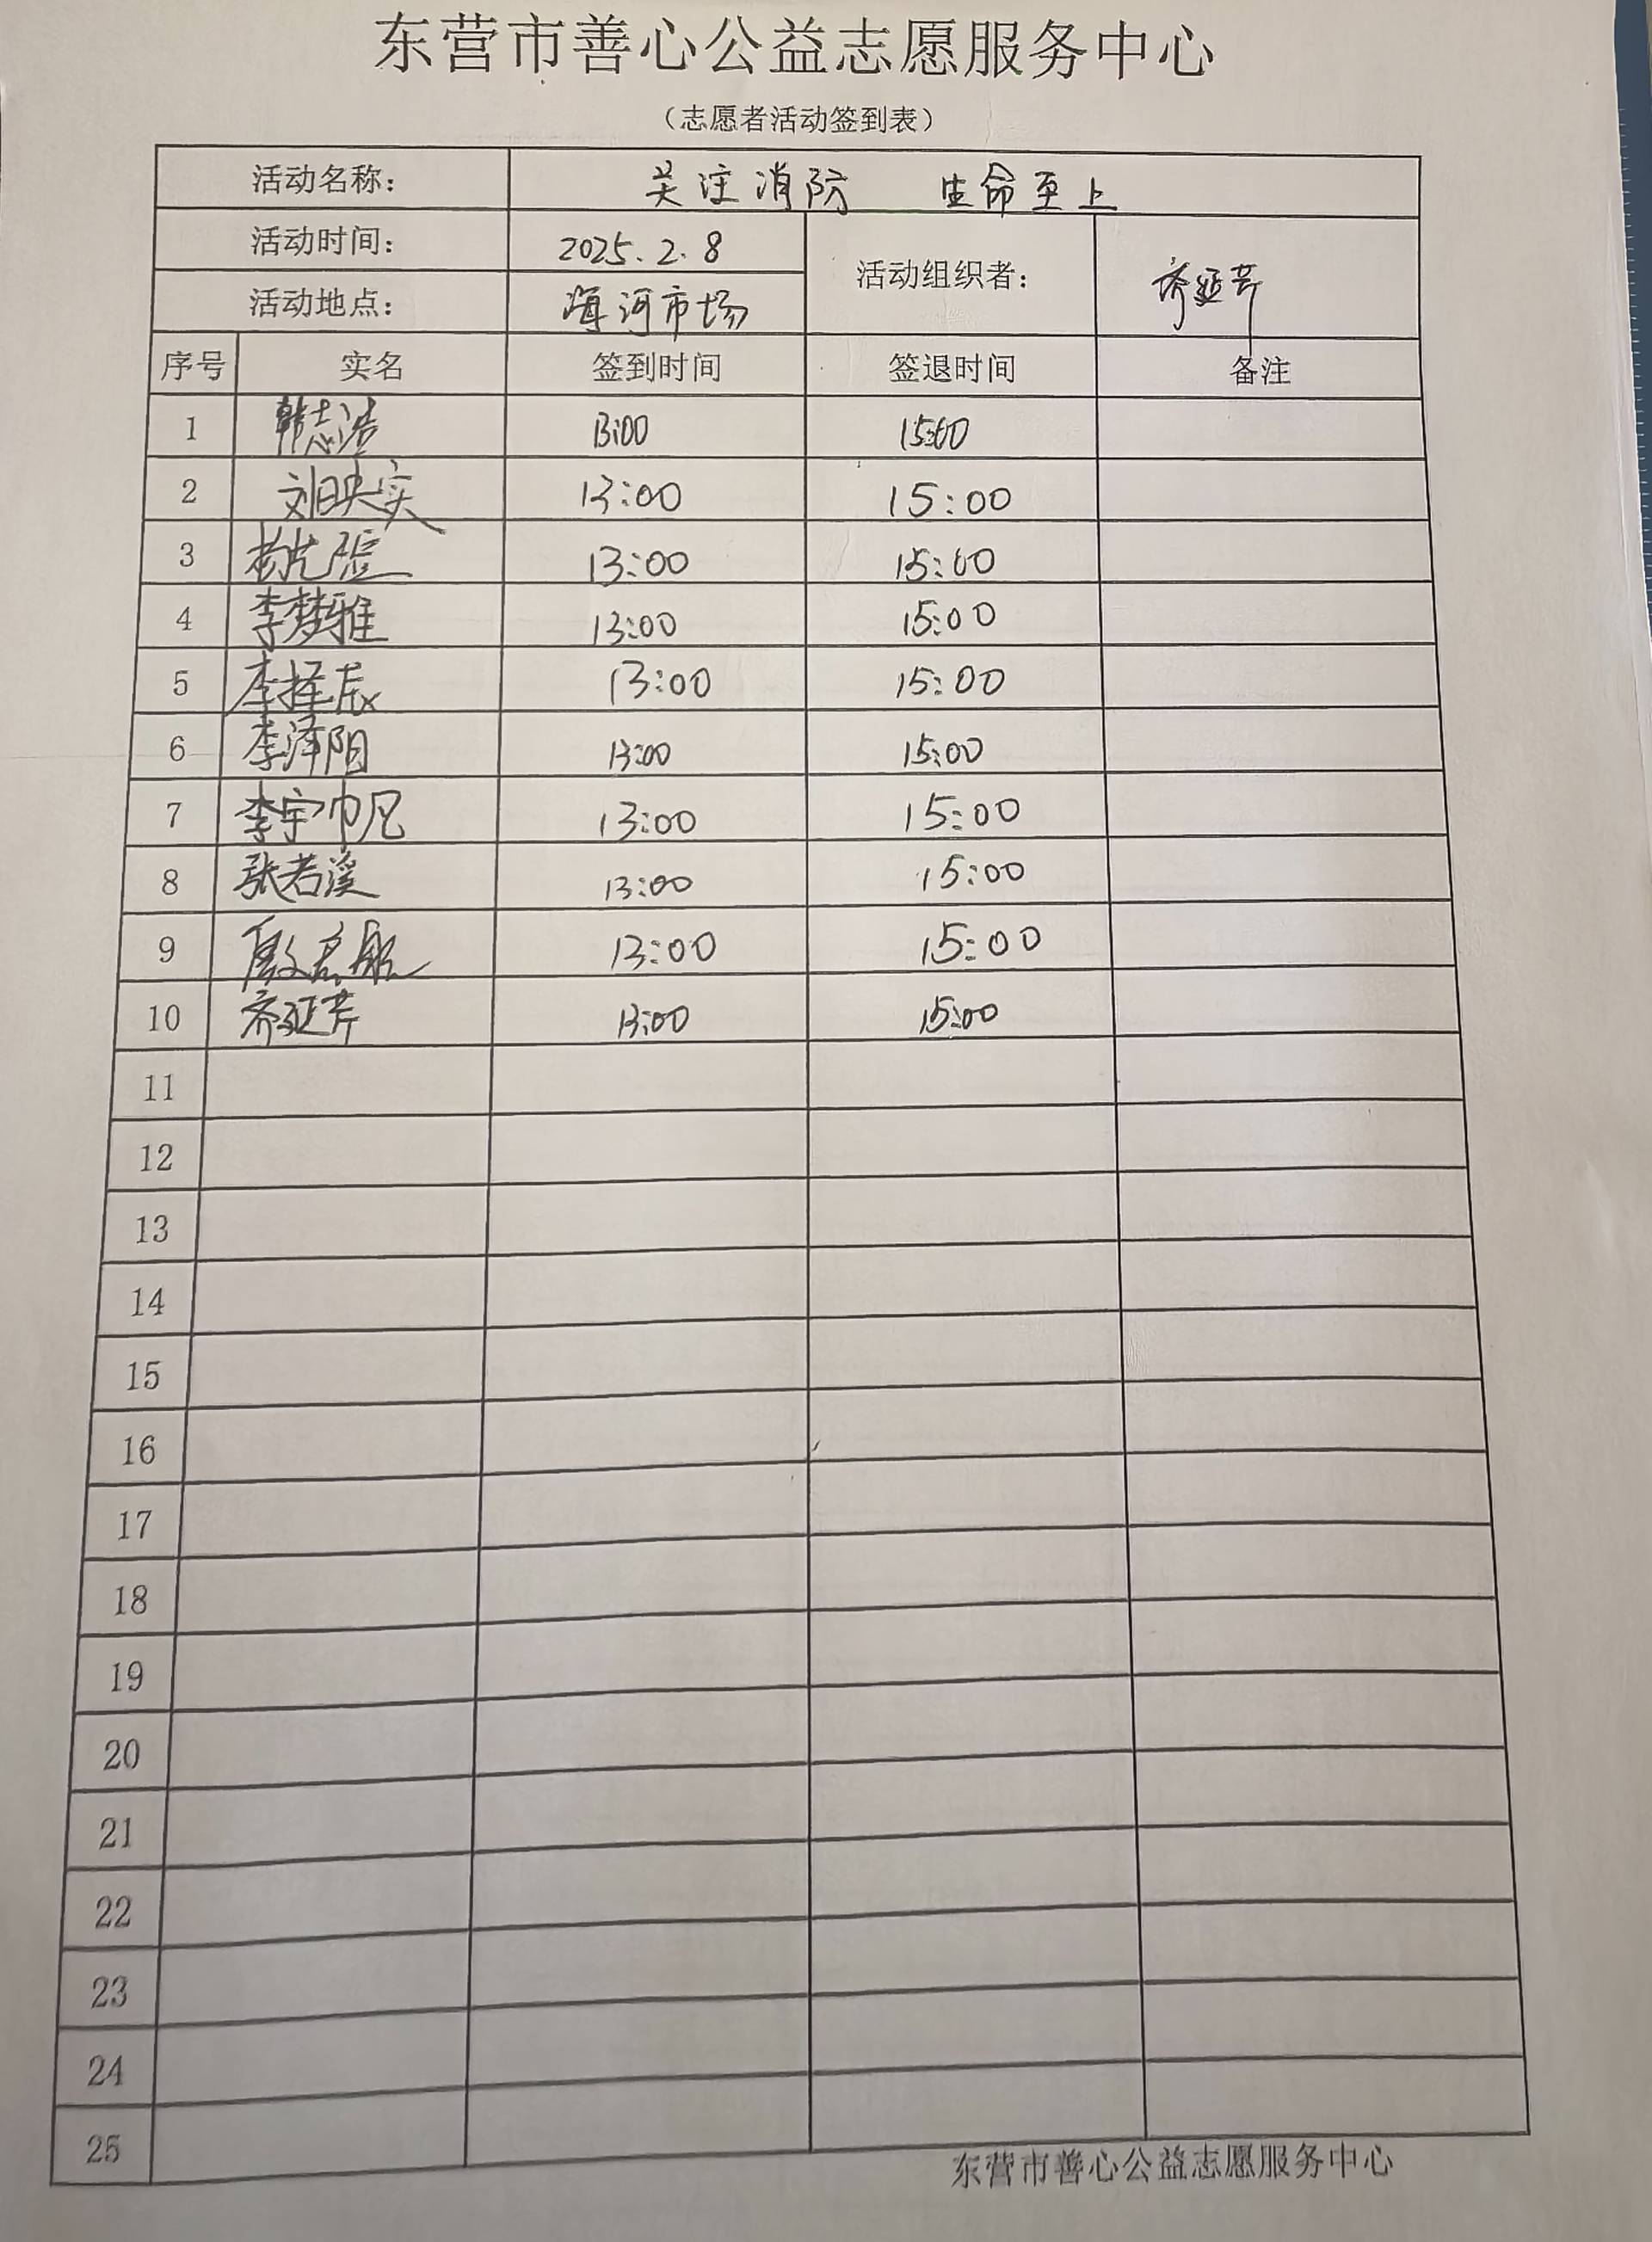 东营市善心公益志愿服务中心
（志愿者活动签到表）
活动名称： 关注消防 生命至上
活动时间： 2025.2.8 活动组织者： 齐延芹
活动地点： 海河市场
序号 实名 签到时间 签退时间 备注
1 韩志浩 13:00 15:00
2 刘映实 13:00 15:00
3 13:00 15:00
4 李梦雅 13:00 15:00
5 李择辰 13:00 15:00
6 李泽阳 13:00 15:00
7 李宇帆 13:00 15:00
8 张若溪 13:00 15:00
9 13:00 15:00
10 齐延芹 13:00 15:00
11
12
13
14
15
16
17
18
19
20
21
22
23
24
25
东营市善心公益志愿服务中心